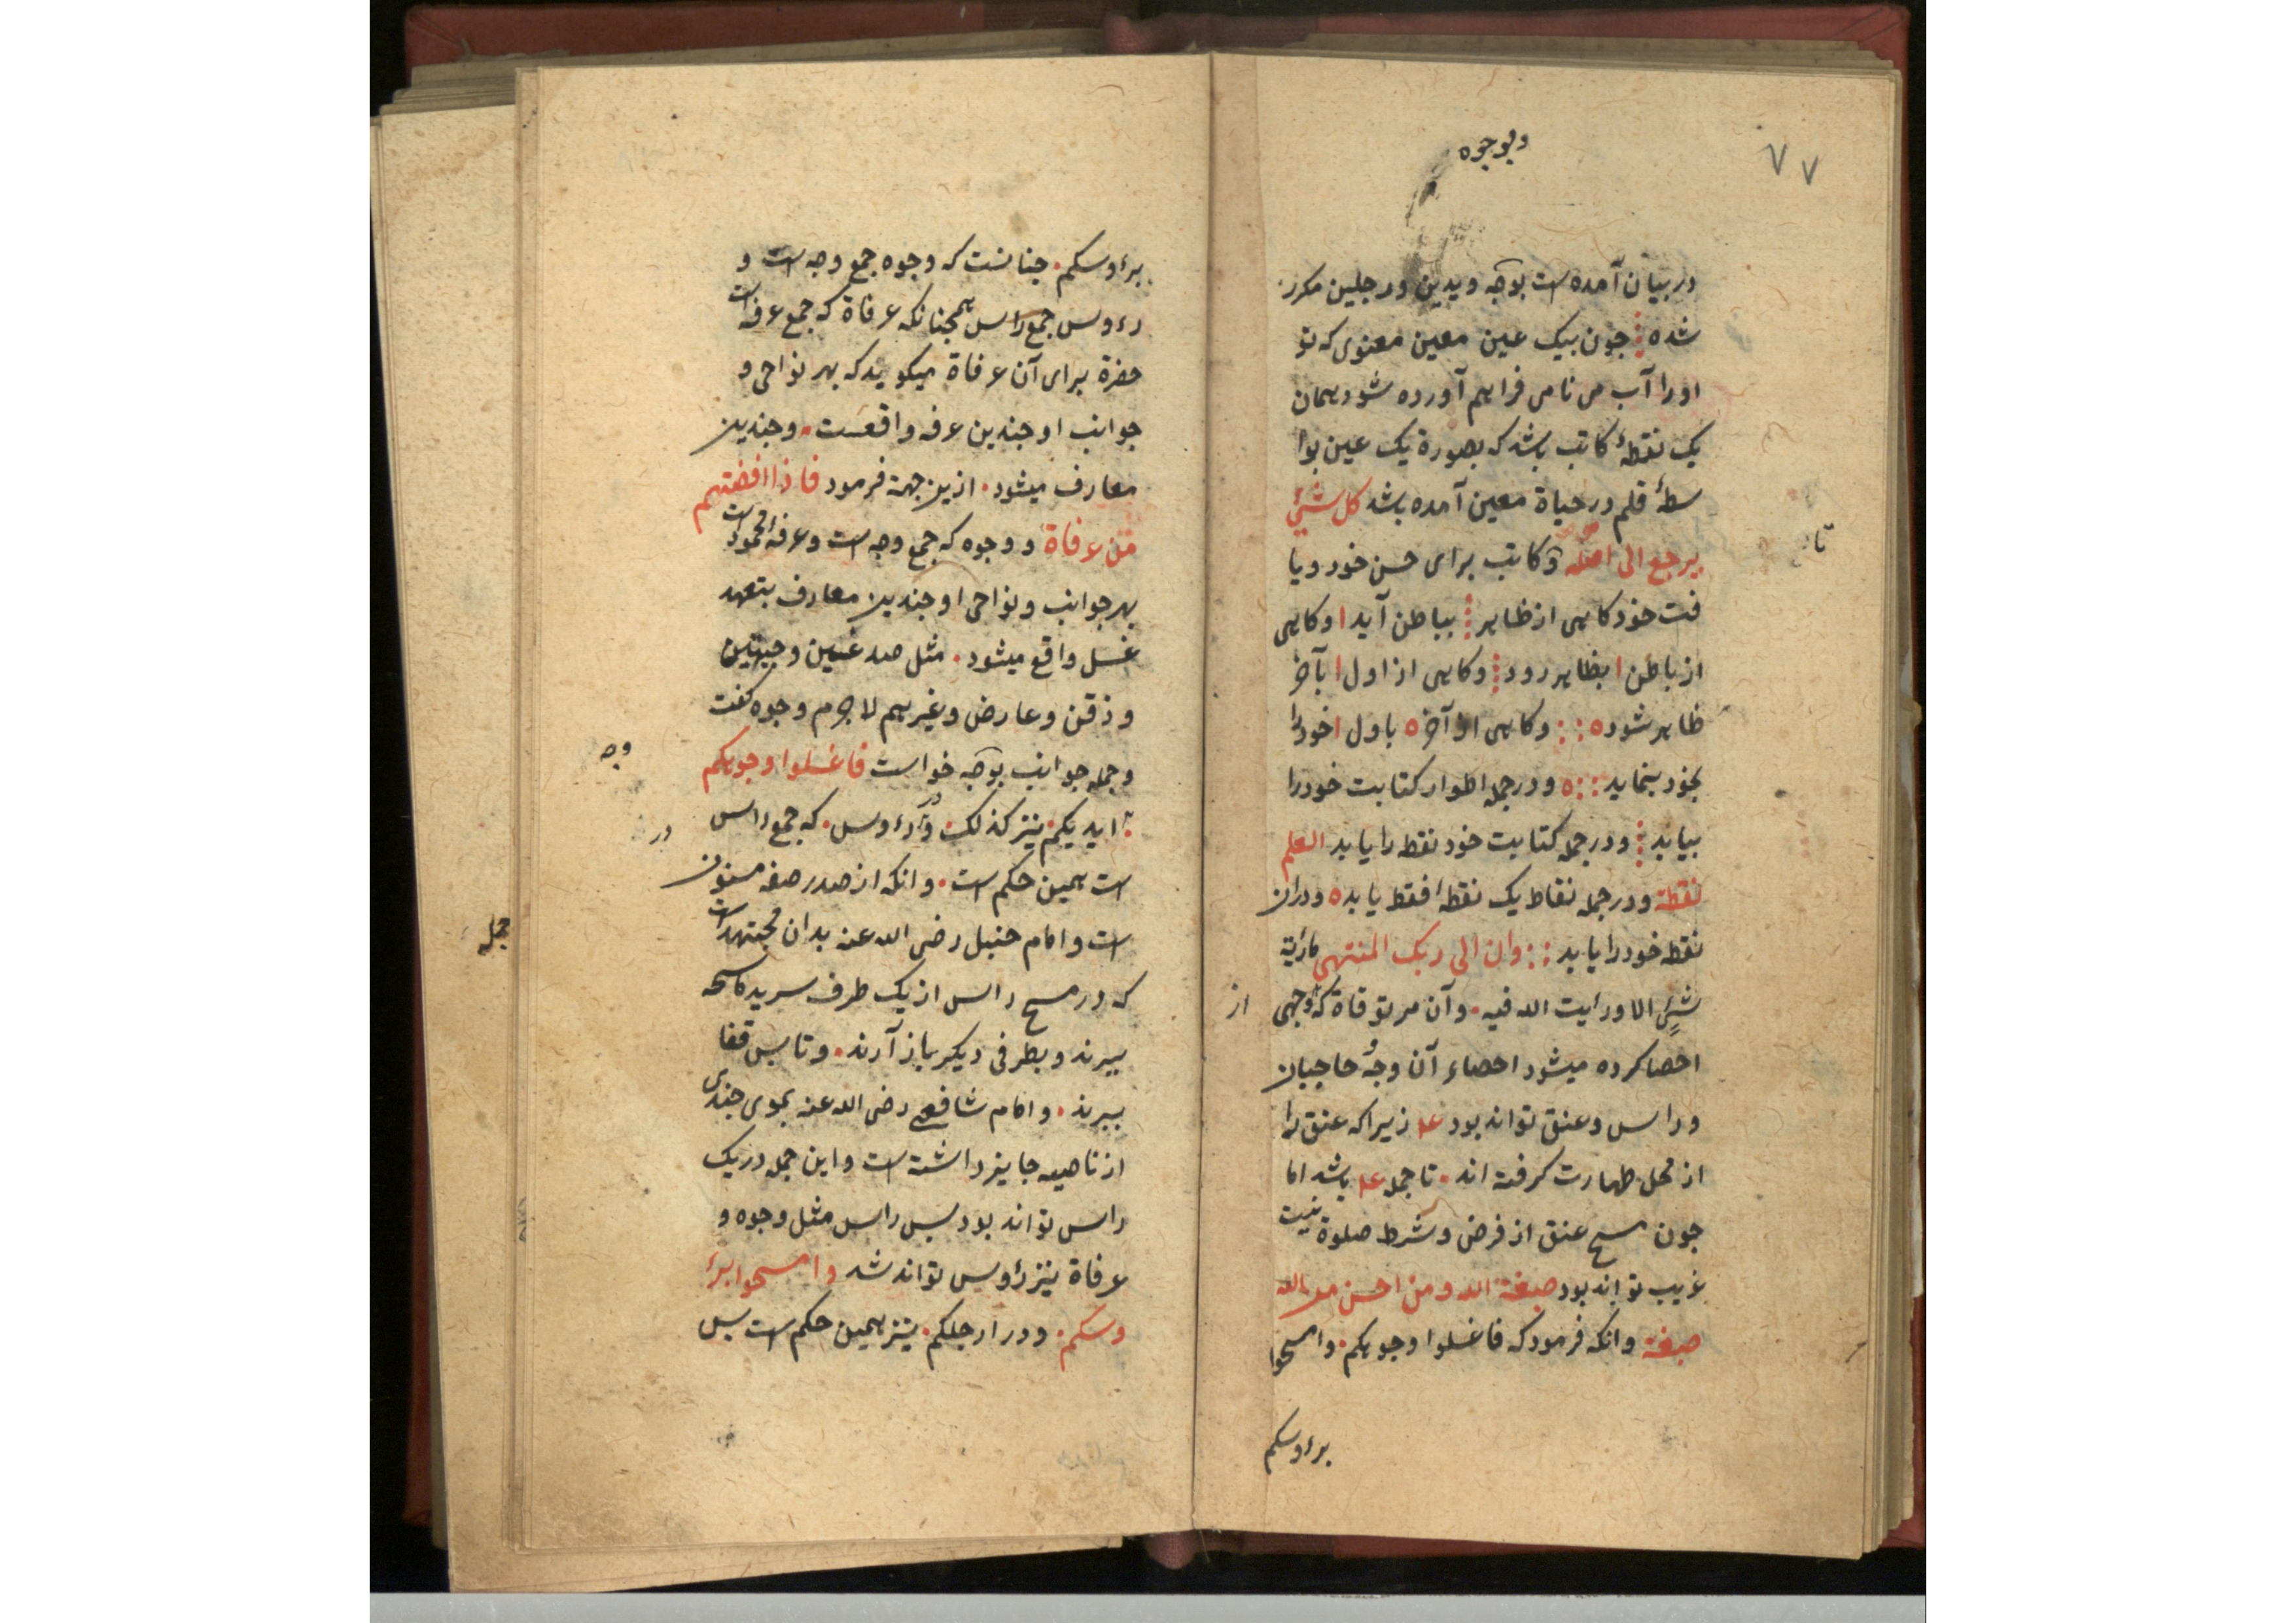 ٧٧
وبوجوه
در بیان آمده است بوجه ویدین ورجلین مکرر
شده جون بیک عین معین معنوی که تو
اورا آب می نامی فراهم آورده شود همان
یک نقطهٔ کاتب باشد که بصورة یک عین بوا
سطهٔ قلم در حیاة معین آمده باشد کل شیٔ
یرجع الی اصله وکاتب برای حسن خود ویا
فت خود کاهی از ظاهر بباطن آید ا وکاهی
از باطن ا بظاهر رود وکاهی از اول ا بآخر
ظاهر شود ٥ وکاهی از آخر ٥ باول ا خودرا
بخود بنماید ٥ ودر جمله اطوار کتابت خودرا
بیابد ودر جمله کتابت خود نقطه را یابد العلم
نقطة ودر جمله نقاط یک نقطه افقط یابد ٥ ودران
نقطه خودرا یابد وان الی ربک المنتهی مارأیت
شیٔ الا ورایت الله فیه ٠ وآن مرتو قاة که وجهی
از
احصا کرده میشود احصاء آن وجه حاجبان
وراس وعنق تواند بود عد زیراکه عنق را
از محل طهارت کرفته اند ٠ تا جمله عد باشد اما
جون مسح عنق از فرض وشرط صلوة نیست
غریب تواند بود صبغة الله ومن احسن من الله
صبغة وانکه فرمود که فاغسلوا وجوهکم ٠ وامسحوا
برءوسکم
برءوسکم ٠ جنانست که وجوه جمع وجه است و
رءوس جمع راس همجنانکه عرفاة که جمع عرفه است
حضرة برای آن عرفاة میکویند که بهر نواحی و
جوانب او جندین عرفه واقعست ٠ وجندین
معارف میشود ٠ ازین جهة فرمود فاذا افضتهم
من عرفاة و وجوه که جمع وجه است وعرفه محمود است
بهر جوانب ونواحی او جندین معارف بتعهد
غسل واقع میشود ٠ مثل صدغین وجبهتین
وذقن وعارض وغیرهم لا جرم وجوه کفت
وجمله جوانب بوجه خواست فاغسلوا وجوهکم
وجه
ایدیکم نیز کذلک ٠ و در رءوس ٠ که جمع راس
در
است همین حکم است ٠ وانکه از صدر صفه مسنون
است وامام حنبل رضی الله عنه بدان مجتهد است
جمله
که در مسح راس از یک طرف سرید ماسحه
ببرند وبطرفی دیکر باز آرند ٠ وتا بس قفا
ببرند ٠ وامام شافعی رضی الله عنه بموی جندی
از ناصیه جایز داشته است واین جمله در یک
راس تواند بود بس راس مثل وجوه و
عرفاة نیز رؤوس تواند شد وامسحوا برءُ
وسکم ٠ ودر ارجلکم ٠ نیز همین حکم است بس